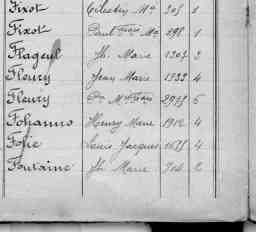 Fixot Célestin Me 305 1
Fixot Paul Fçois Me 298 1
Flageul Jh. Marie 1303 2
Fleury Jean Marie 1332 4
Fleury Me Fçois 2928 6
Fohanno Henry Marie 1912 4
Folie Louis Jacques 4
Fontaine Jh. Marie 2